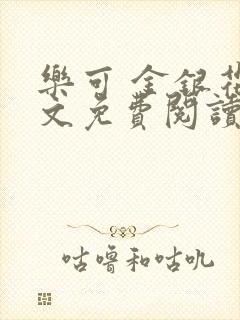 樂可 金銀花
文免費閱讀
咕嚕和咕叽